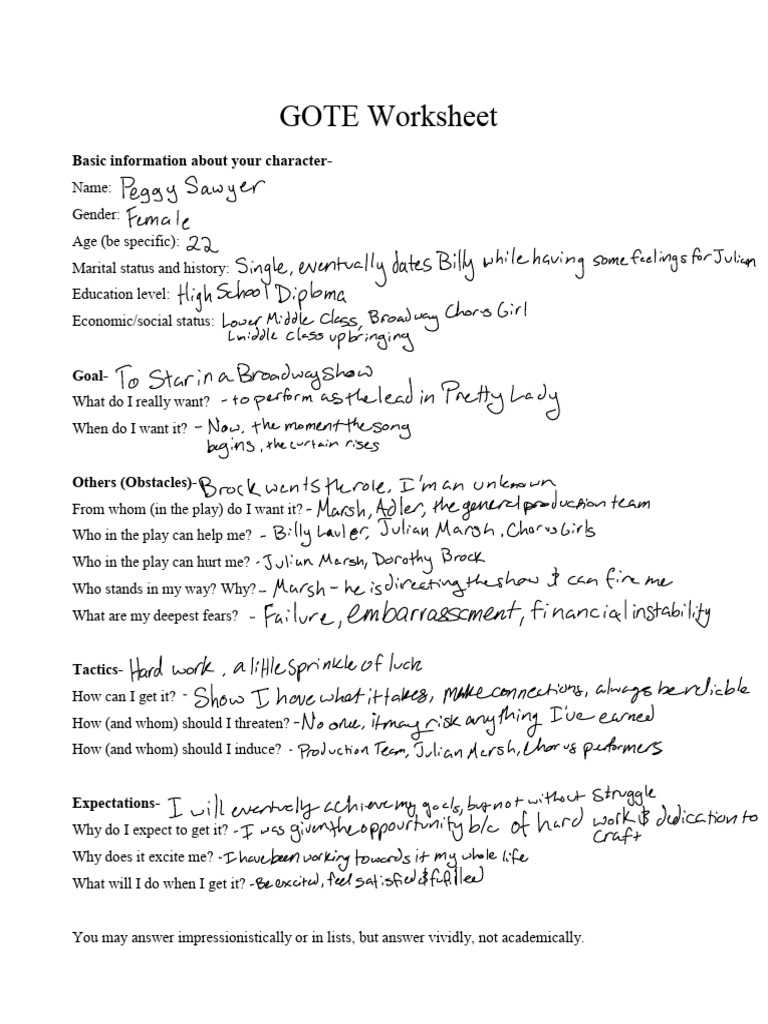 GOTE Worksheet
Basic information about your character-
Name: Peggy Sawyer
Gender: Female
Age (be specific): 22
Marital status and history: Single, eventually dates Billy while having some feelings for Julian
Education level: High School Diploma
Economic/social status: Lower Middle Class, Broadway Chorus Girl
Lmiddle class upbringing
Goal- To Star in a Broadway show
What do I really want? - to perform as the lead in Pretty Lady
When do I want it? - Now, the moment the song
begins, the curtain rises
Others (Obstacles)- Brock wants the role, I'm an unknown
From whom (in the play) do I want it? - Marsh, Adler, the general production team
Who in the play can help me? - Billy Lawler, Julian Marsh, Chorus Girls
Who in the play can hurt me? - Julian Marsh, Dorothy Brock
Who stands in my way? Why? – Marsh - he is directing the show & can fire me
What are my deepest fears? - Failure, embarrasscment, financial instability
Tactics- Hard work, a little sprinkle of luck
How can I get it? - Show I have what it takes, make connections, always be reliable
How (and whom) should I threaten? - No one, it may risk anything I've earned
How (and whom) should I induce? - Production Team, Julian Marsh, Chorus performers
Expectations- I will eventually achieve my goals, but not without struggle
Why do I expect to get it? - I was given the oppourtunity b/c of hard work & dedication to
craft
Why does it excite me? - I have been working towards it my whole life
What will I do when I get it? - Be excited, feel satisfied & fulfilled
You may answer impressionistically or in lists, but answer vividly, not academically.